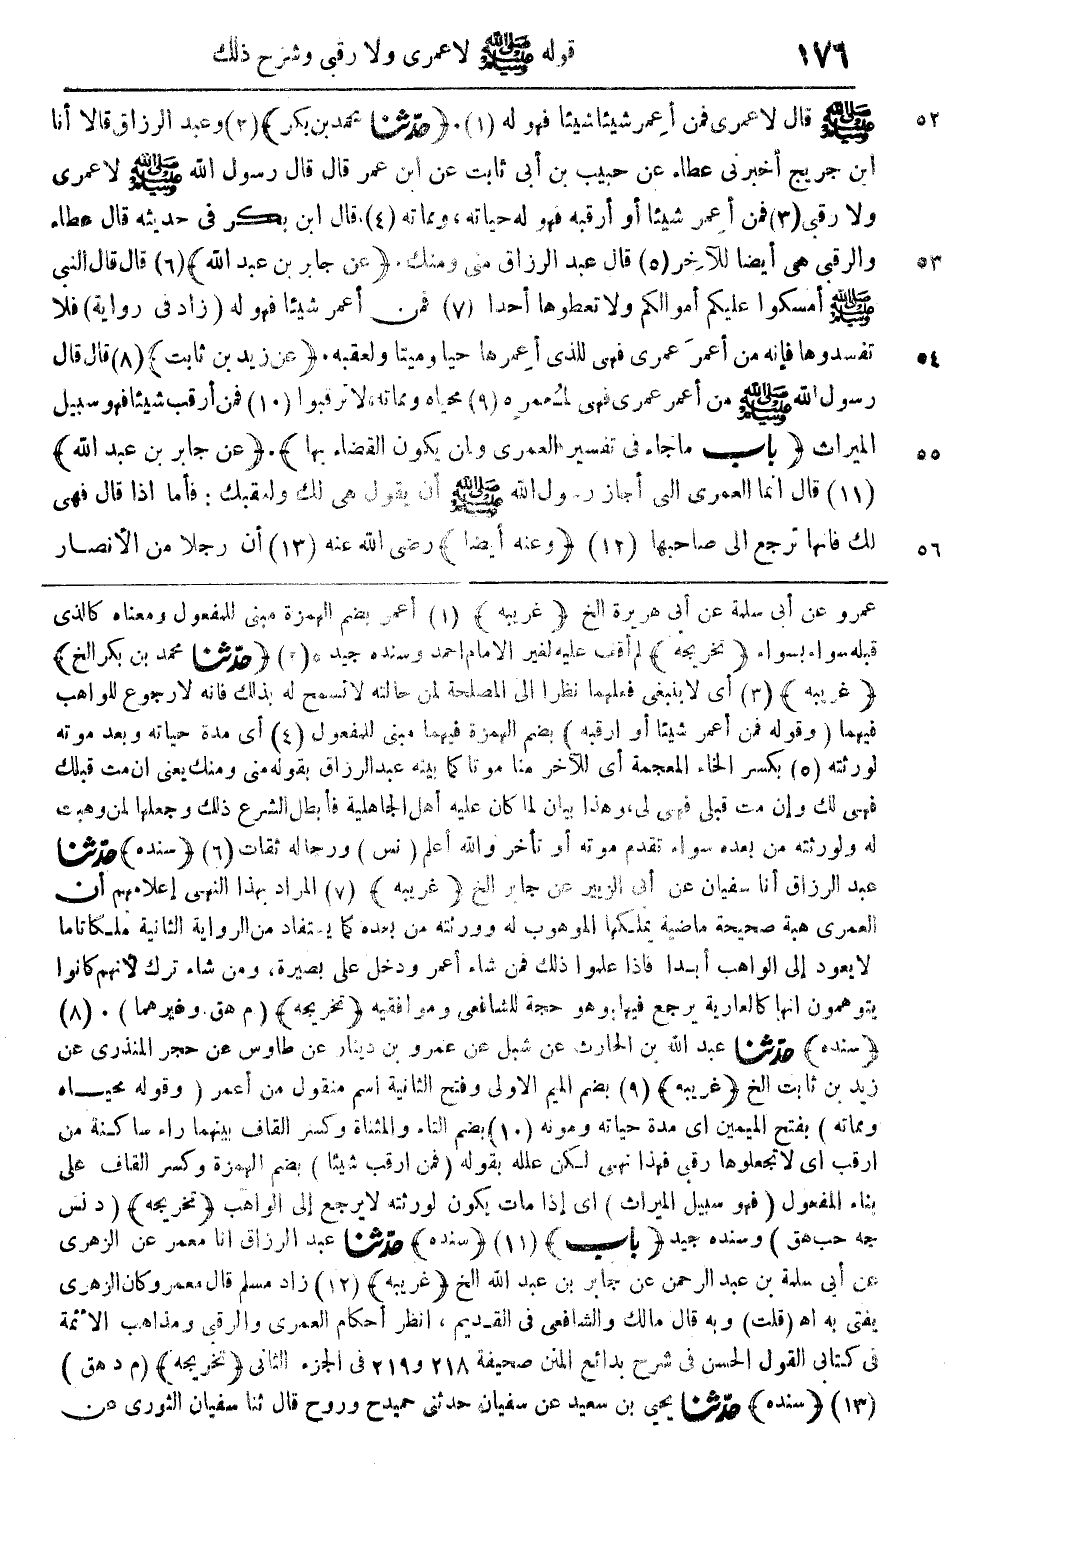 ١٧٦ قوله ﷺ لا عمرى ولا رقبى وشرح ذلك
٥٢ ﷺ قال لا عمرى فمن أعمر شيئا شيئا فهو له (١)٠﴿حدّثنا محمد بن بكر﴾(٢) وعبد الرزاق قالا أنا
ابن جريج أخبرنى عطاء عن حبيب بن أبى ثابت عن ابن عمر قال قال رسول الله ﷺ لا عمرى
ولا رقبى(٣) فمن أعمر شيئا أو أرقبه فهو له حياته، ومماته (٤)، قال ابن بكر فى حديثه قال عطاء
٥٣ والرقبى هى أيضا للآخر(٥) قال عبد الرزاق منى ومنك٠﴿عن جابر بن عبد الله﴾(٦) قال قال النبى
ﷺ أمسكوا عليكم أموالكم ولا تعطوها أحدا (٧) فمن أعمر شيئا فهو له (زاد فى رواية) فلا
٥٤ تفسدوها فإنه من أعمر عمرى فهى للذى أعمرها حيا وميتا ولعقبه٠﴿عن زيد بن ثابت﴾(٨) قال قال
رسول الله ﷺ من أعمر عمرى فهى لمُعمره (٩) محياه ومماته، لا ترقبوا (١٠) فمن أرقب شيئا فهو سبيل
٥٥ الميراث ﴿باب ما جاء فى تفسير العمرى ولمن يكون القضاء بها﴾٠﴿عن جابر بن عبد الله﴾
(١١) قال انما العمرى التى أجاز رسول الله ﷺ أن يقول هى لك ولعقبك : فأما اذا قال فهى
٥٦ لك فانها ترجع الى صاحبها (١٢) ﴿وعنه أيضا﴾ رضى الله عنه (١٣) أن رجلا من الأنصار
عمرو عن أبى سلمة عن أبى هريرة الخ ﴿غريبه﴾ (١) أعمر بضم الهمزة مبنى للمفعول ومعناه كالذى
قبله سواء بسواء ﴿تخريجه﴾ لم أقف عليه لغير الامام احمد وسنده جيد ٠(٢) ﴿حدّثنا محمد بن بكر الخ﴾
﴿غريبه﴾ (٣) أى لا ينبغى فعلهما نظرا الى المصلحة لمن حالته لا تسمح له بذلك فانه لا رجوع للواهب
فيهما (وقوله فمن أعمر شيئا أو ارقبه) بضم الهمزة فيهما مبنى للمفعول (٤) أى مدة حياته وبعد موته
لورثته (٥) بكسر الخاء المعجمة أى للآخر منا موتا كما بينه عبد الرزاق بقوله منى ومنك يعنى ان مت قبلك
فهى لك وإن مت قبلى فهى لى، وهذا بيان لما كان عليه أهل الجاهلية فأبطل الشرع ذلك وجعلها لمن وهبت
له ولورثته من بعده سواء تقدم موته أو تأخر والله أعلم (نس) ورجاله ثقات (٦) ﴿سنده﴾ حدّثنا
عبد الرزاق أنا سفيان عن أبى الزبير عن جابر الخ ﴿غريبه﴾ (٧) المراد بهذا النهى إعلامهم أن
العمرى هبة صحيحة ماضية يملكها الموهوب له وورثته من بعده كما يستفاد من الرواية الثانية ملكا تاما
لا يعود إلى الواهب أبدا فاذا علموا ذلك فمن شاء أعمر ودخل على بصيرة، ومن شاء ترك لأنهم كانوا
يتوهمون انها كالعارية يرجع فيها، وهو حجة للشافعى وموافقيه ﴿تخريجه﴾ (م هق وغيرهما) ٠ (٨)
﴿سنده﴾ حدّثنا عبد الله بن الحارث عن شبل عن عمرو بن دينار عن طاوس عن حجر المنذرى عن
زيد بن ثابت الخ ﴿غريبه﴾ (٩) بضم الميم الاولى وفتح الثانية اسم منقول من أعمر (وقوله محياه
ومماته) بفتح الميمين اى مدة حياته وموته (١٠) بضم التاء والمثناة وكسر القاف بينهما راء ساكنة من
ارقب اى لا تجعلوها رقبى فهذا نهى لكن علله بقوله (فمن ارقب شيئا) بضم الهمزة وكسر القاف على
بناء المفعول (فهو سبيل الميراث) اى إذا مات يكون لورثته لا يرجع إلى الواهب ﴿تخريجه﴾ (د نس
جه حب هق) وسنده جيد ﴿باب﴾ (١١) ﴿سنده﴾ حدّثنا عبد الرزاق انا معمر عن الزهرى
عن أبى سلمة بن عبد الرحمن عن جابر بن عبد الله الخ ﴿غريبه﴾ (١٢) زاد مسلم قال معمر وكان الزهرى
يفتى به اه (قلت) وبه قال مالك والشافعى فى القديم، انظر أحكام العمرى والرقبى ومذاهب الأئمة
فى كتابى القول الحسن فى شرح بدائع المنن صحيفة ٢١٨ و٢١٩ فى الجزء الثانى ﴿تخريجه﴾ (م د هق)
(١٣) ﴿سنده﴾ حدّثنا يحيى بن سعيد عن سفيان حدثنى حميد ح وروح قال ثنا سفيان الثورى عن